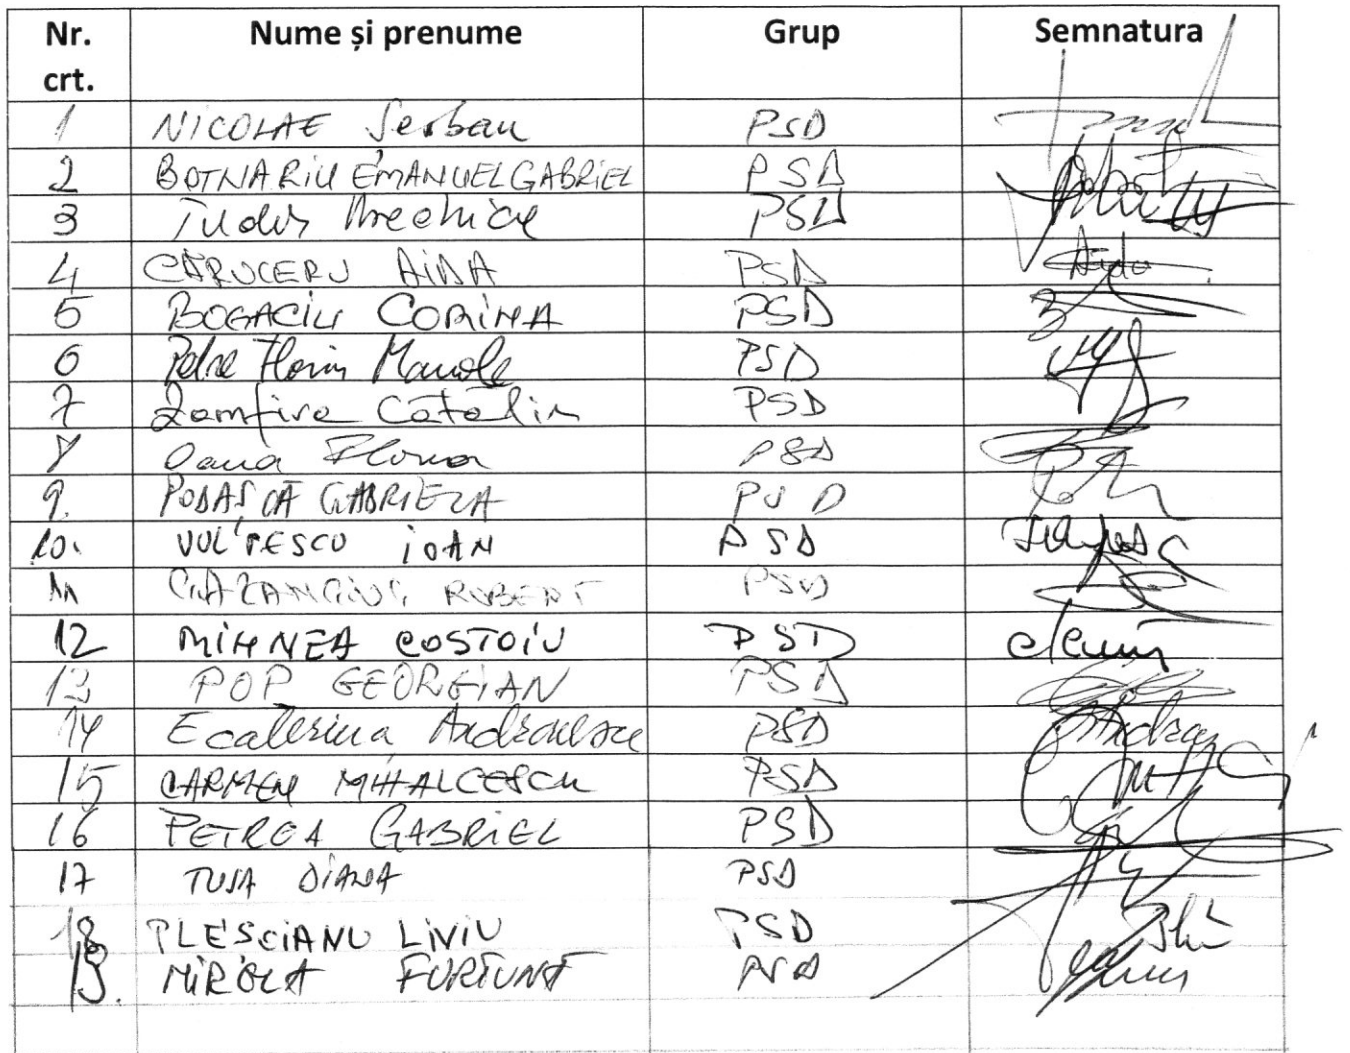 Nr. crt. Nume și prenume Grup Semnatura
1 NICOLAE Serban PSD
2 BOTNARIU EMANUEL GABRIEL PSD
3 Tudor PSD
4 CĂRUCERU AIDA PSD Aida
5 BOGACIU CORINA PSD
6 Petre Florin Manole PSD
7 Zamfira Cătălin PSD
8 Oana Florea PSD
9. PODAȘCĂ GABRIELA PSD
10. VULPESCU IOAN PSD
11 ROBERT PSD
12 MIHNEA COSTOIU PSD
13 POP GEORGIAN PSD
14 Ecaterina Andronescu PSD
15 CARMEN MIHALCESCU PSD
16 PETREA GABRIEL PSD
17 TUȘA DIANA PSD
18 PLEȘCIANU LIVIU PSD
19. FURTUNĂ